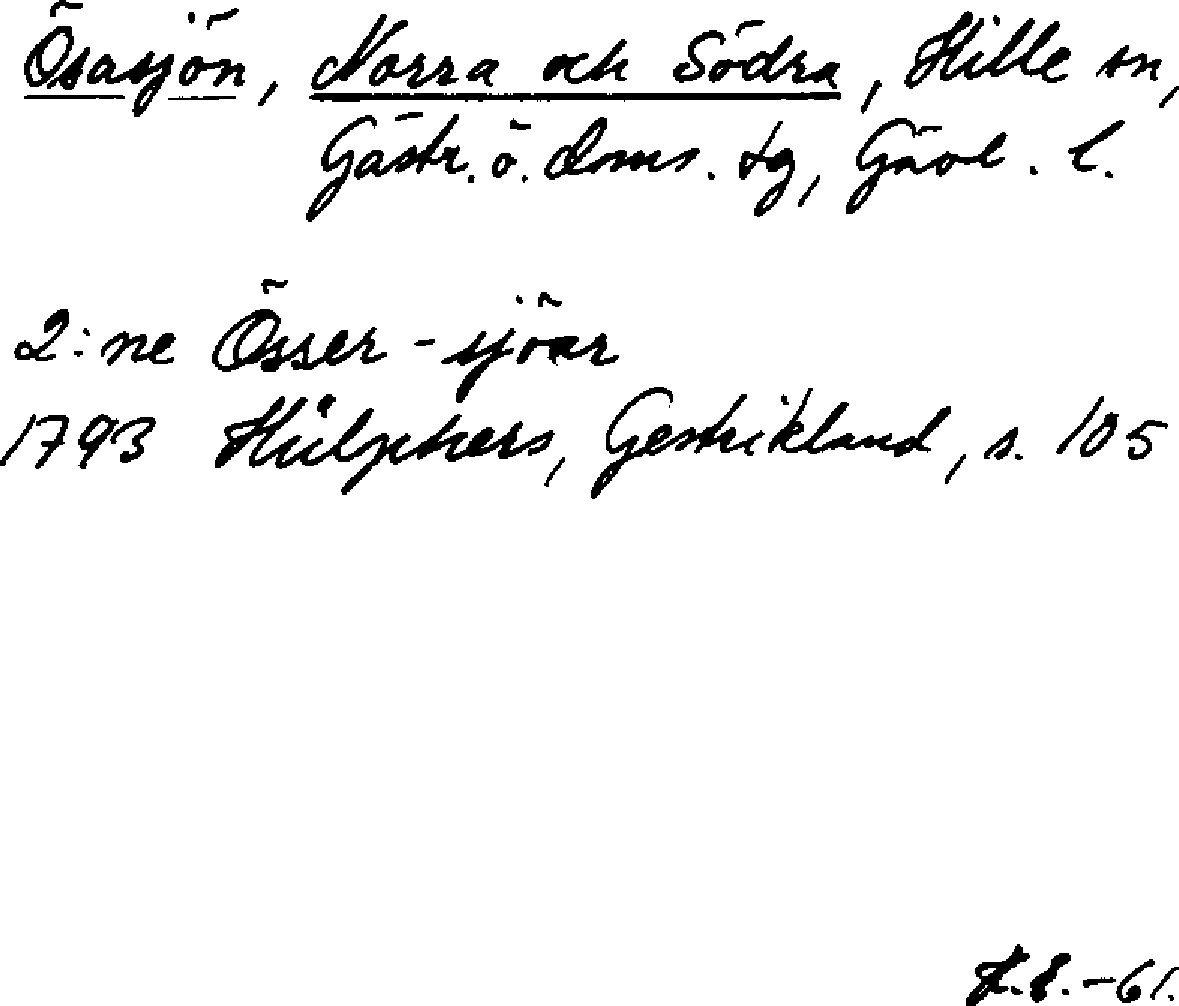 Ösasjön, Norra och Södra, Hille sn,
Gästr. ö. doms. tg, Gävl. l.
2:ne Össer-sjöar
1793 Hülphers, Gestrikland, s. 105
-61.